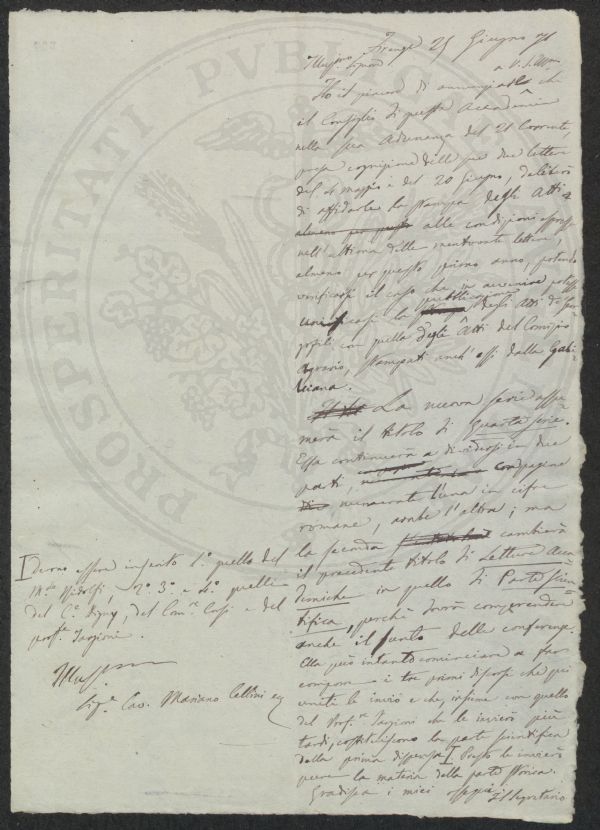 Firenze 25 Giugno 71
Illustrmo Signore
Ho il piacere di annunziare a V. S. Illma che
il Consiglio di questa Accademia
nella sua Adunanza del 21 Corrente,
presa cognizione delle sue due lettere
del 4 maggio e del 20 giugno, deliberò
di affidarle la stampa degli Atti
almeno per questo alle condizioni espresse
nell'ultima delle mentovate lettere,
almeno per questo primo anno, potendo
verificarsi il caso che in avvenire potesse
unificarsi la pubblicazione degli Atti dei Geor
gofili con quella degli Atti del Comizio
Agrario, stampati anch'essi dalla Gali
leiana.
La nuova serie assu
merà il titolo di Quarta Serie.
Essa continuerà a dividersi in due
parti, con pagine
numerate l'una in cifre
romane, arabe l'altra; ma
la seconda cambierà
il precedente titolo di Letture Acca
demiche in quello di Parte Scien
tifica, perchè dovrà comprendere
anche il sunto delle conferenze.
Ella può intanto cominciare a far
comporre i tre primi discorsi che qui
uniti le invio e che, insieme con quello
del Prof.re Targioni che le invierò più
tardi, costituiscono la parte scientifica
della prima dispensa. Presto le invierò
pure la materia della parte storica.
Gradisca i miei ossequi
Il Segretario
Devono essere inserito 1.° quello del
Mse Ridolfi, 2.° 3.° e 4.° quelli
del Ce Digny, del Com.re Cosi e del
prof.re Targioni.
Illustrmo
Sig.e Cav. Mariano Cellini
PROSPERITATI PVBLICAE